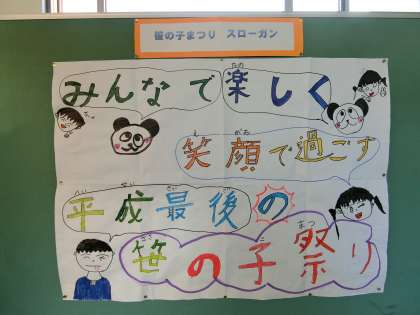 笹の子まつり スローガン
みんなで楽しく
笑顔で過ごす
平成最後の
笹の子祭り